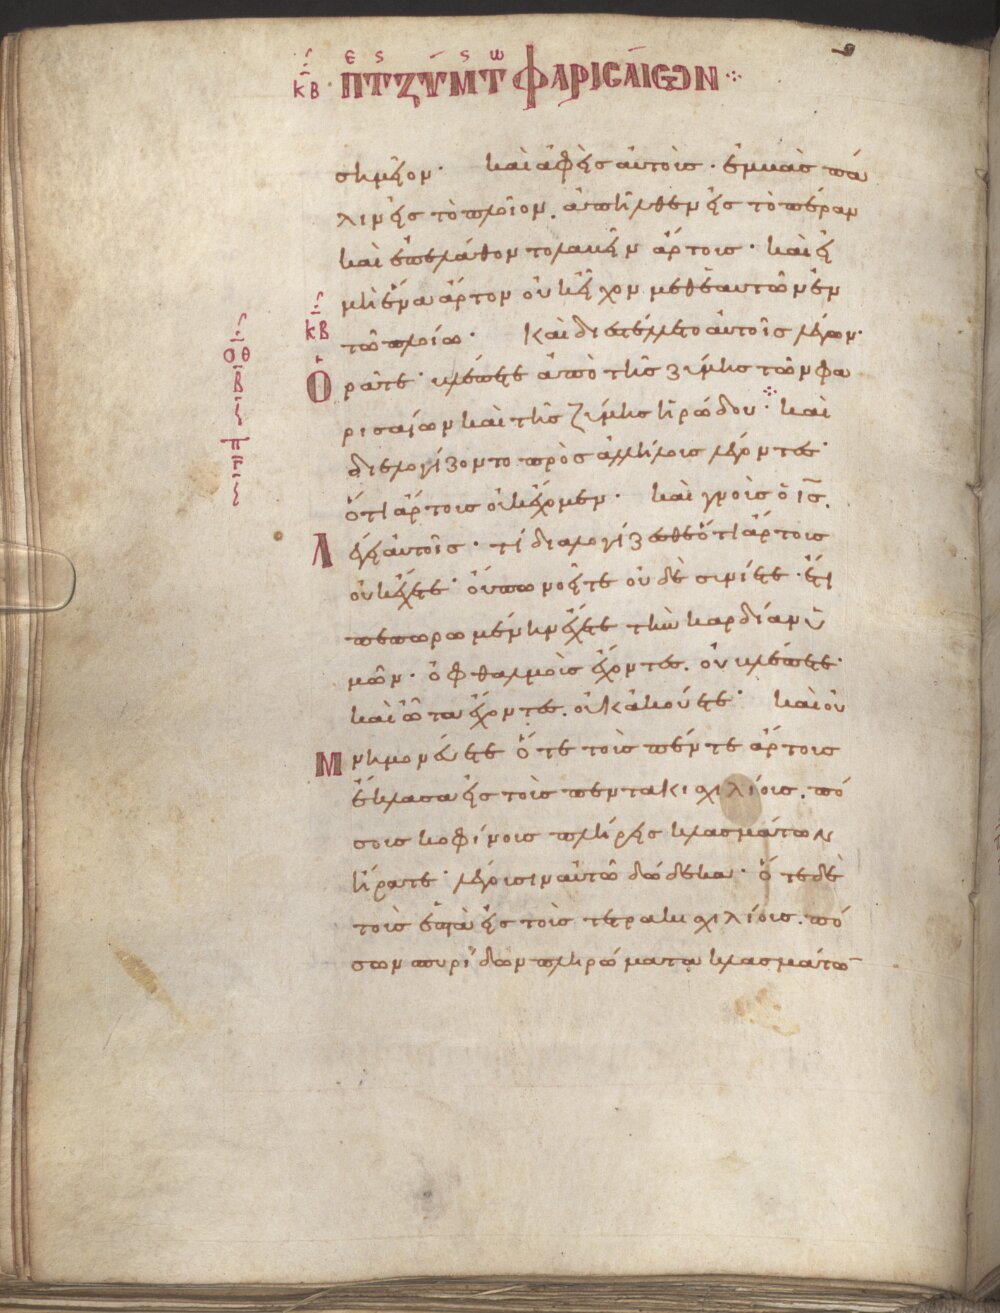 κβ · περ τς ζύμης τω φαρισαίων
σημεῖον· καὶ ἀφεὶς αὐτοὺς · ἐμβὰς πά
λιν εἰς τὸ πλοῖον. ἀπῆλθεν εἰς τὸ πέραν
καὶ ἐπελάθοντο λαβεῖν ἄρτους · καὶ εἰ
μὴ ἕνα ἄρτον οὐκ εἶχον μεθ ἑαυτῶν ἐν
κβ
τῶ πλοίω · Καὶ διεστέλλετο αὐτοῖς λέγων·
Ὁρᾶτε· βλέπετε ἀπὸ τῆς ζύμης τῶν φα
ρισαίων καὶ τῆς ζύμης ἡρώδου · καὶ
διελογίζοντο πρὸς ἀλλήλους λέγοντες·
ὅτι ἄρτους οὐκ ἔχομεν · καὶ γνοὺς ὁ ις.
Λέγει αὐτοῖς · τί διαλογίζεσθε ὅτι ἄρτους
οὐκ ἔχετε· οὔπω νοεῖτε οὐδὲ συνίετε · ἔτι
πεπωρωμένην ἔχετε τὴν καρδίαν ὑ
μῶν · ὀφθαλμοὺς ἔχοντες. οὐ βλέπετε·
καὶ ὦτα ἔχοντες. οὐκ ἀκούετε· καὶ οὐ
Μνημονεύετε ὅτε τοὺς πέντε ἄρτους
ἔκλασα εἰς τοὺς πεντακιχιλίους. πό
σους κοφίνους πλήρεις κλασμάτων
ἤρατε· λέγουσιν αὐτῶ δώδεκα · ὅτε δὲ
τοὺς ἑπτὰ εἰς τοὺς τετρακιχιλίους. πό
σων σπυρίδων πληρώματα κλασμάτω
οθ
β
πγ